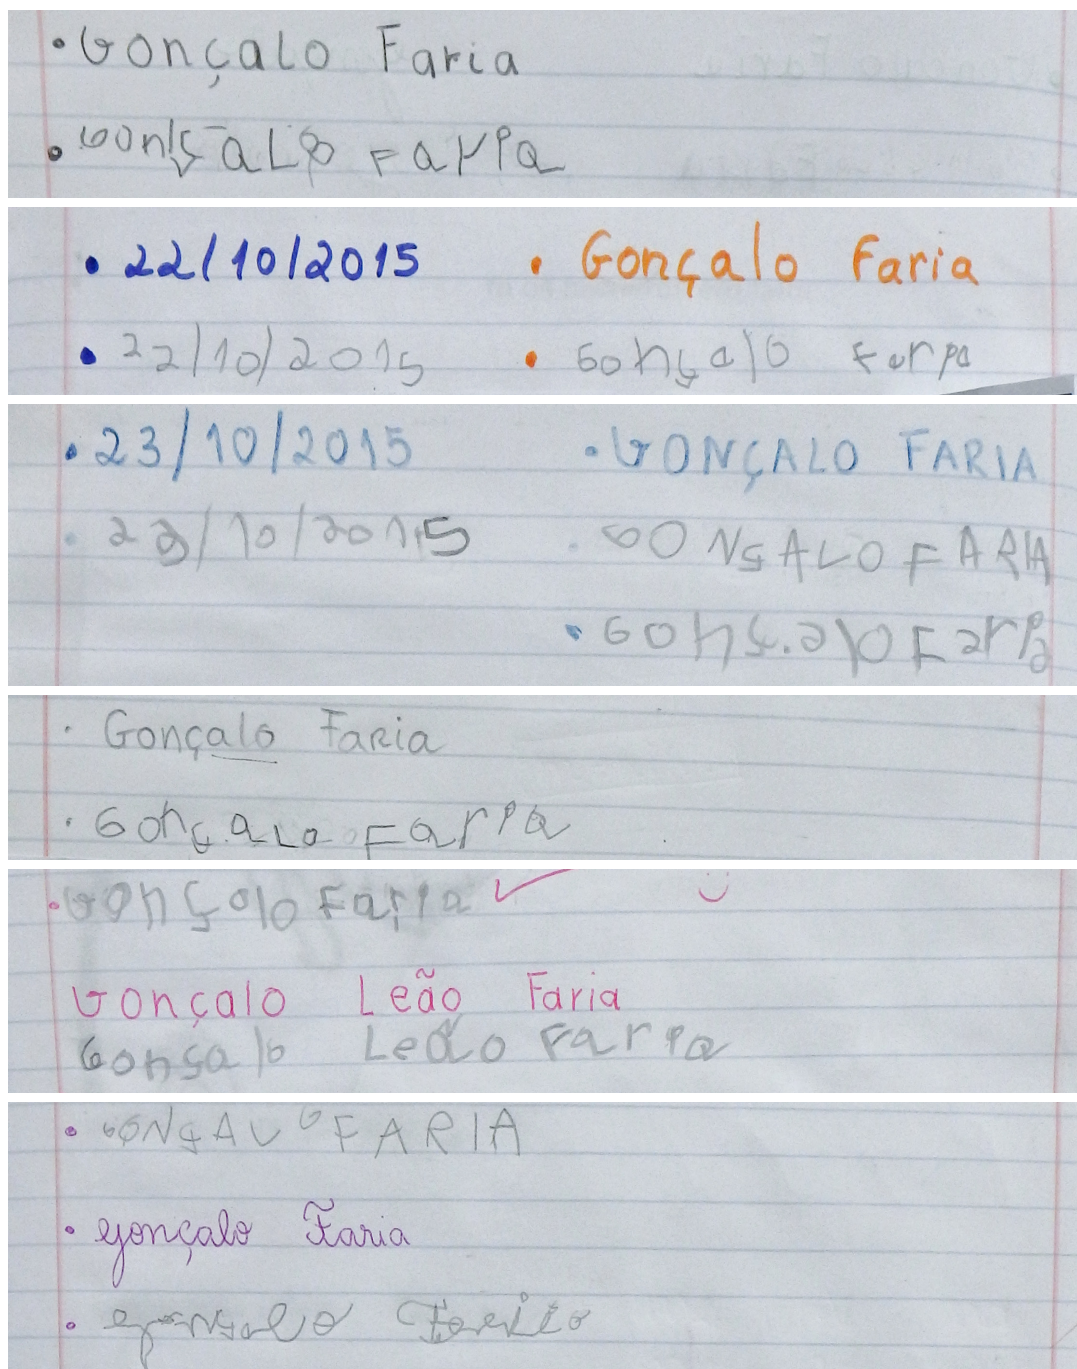 • Gonçalo Faria
• GonçaLo FarIa
• 22/10/2015 • Gonçalo Faria
• 22/10/2015 • Gonçalo Faria
• 23/10/2015 • GONÇALO FARIA
• 23/10/2015 • GONÇALO FARIA
• Gonç.alo Faria
• Gonçalo FaRia
• Gonç.aLo Faria
• Gonçalo Faria ✓
Gonçalo Leão Faria
Gonçalo Leão Faria
• GONÇALO FARIA
• Gonçalo Faria
• Gonçalo Faria